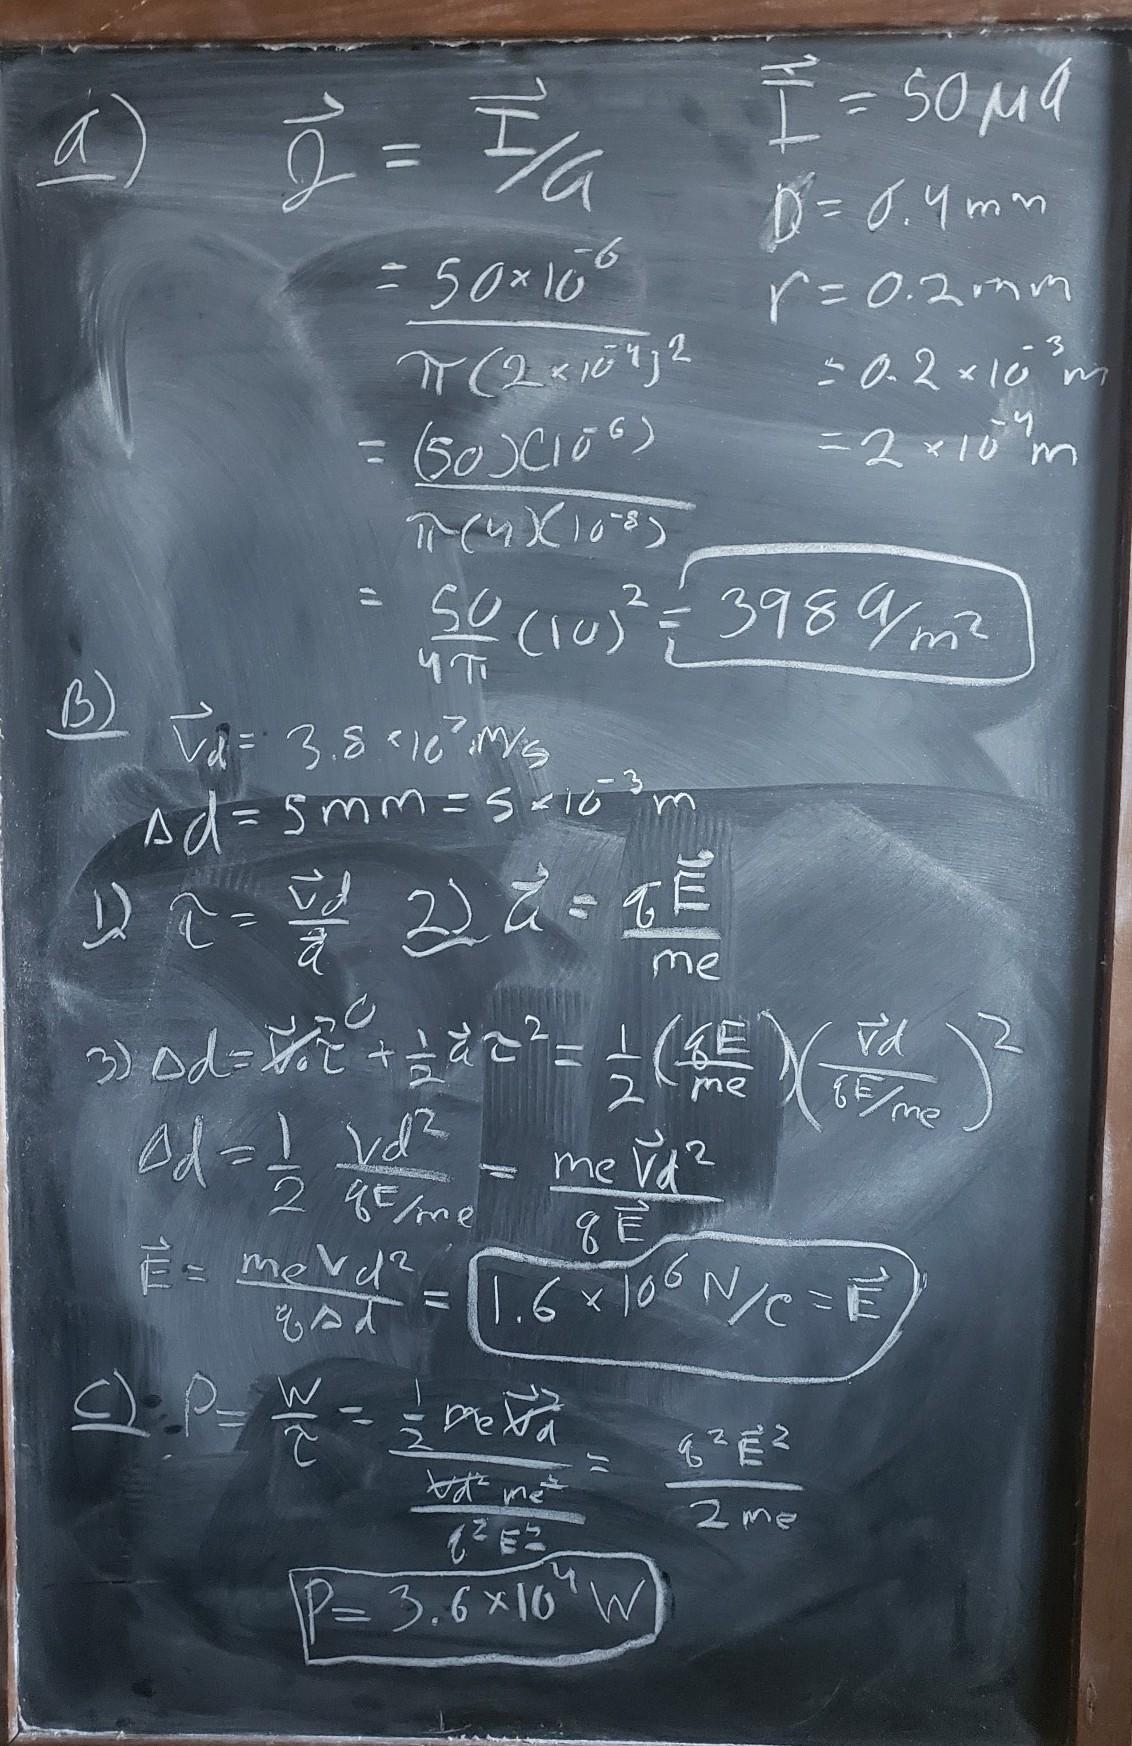 a) J⃗ = I⃗/a
I⃗ = 50 μa
D = 0.4 mm
r = 0.2 mm
= 0.2 × 10⁻³ m
= 2 × 10⁻⁴ m
= 50×10⁻⁶ / π(2×10⁻⁴)²
= (50)(10⁻⁶) / π(4)(10⁻⁸)
= 50/4π (10)² = 398 a/m²
B)
V⃗d = 3.8 × 10⁷ m/s
Δd = 5mm = 5×10⁻³ m
1) τ = V⃗d/a⃗ 2) a⃗ = qE⃗/me
3) Δd = V⃗₀τ⁰ + ½ a⃗τ² = ½ (qE/me)(V⃗d / qE/me)²
Δd = ½ Vd² / qE/me = me V⃗d² / qE⃗
E⃗ = me Vd² / qΔd = 1.6 × 10⁶ N/C = E⃗
C) P = W/τ = ½ me V⃗d² / Vd² me² / q²E² = q²E⃗² / 2 me
P = 3.6×10⁴ W